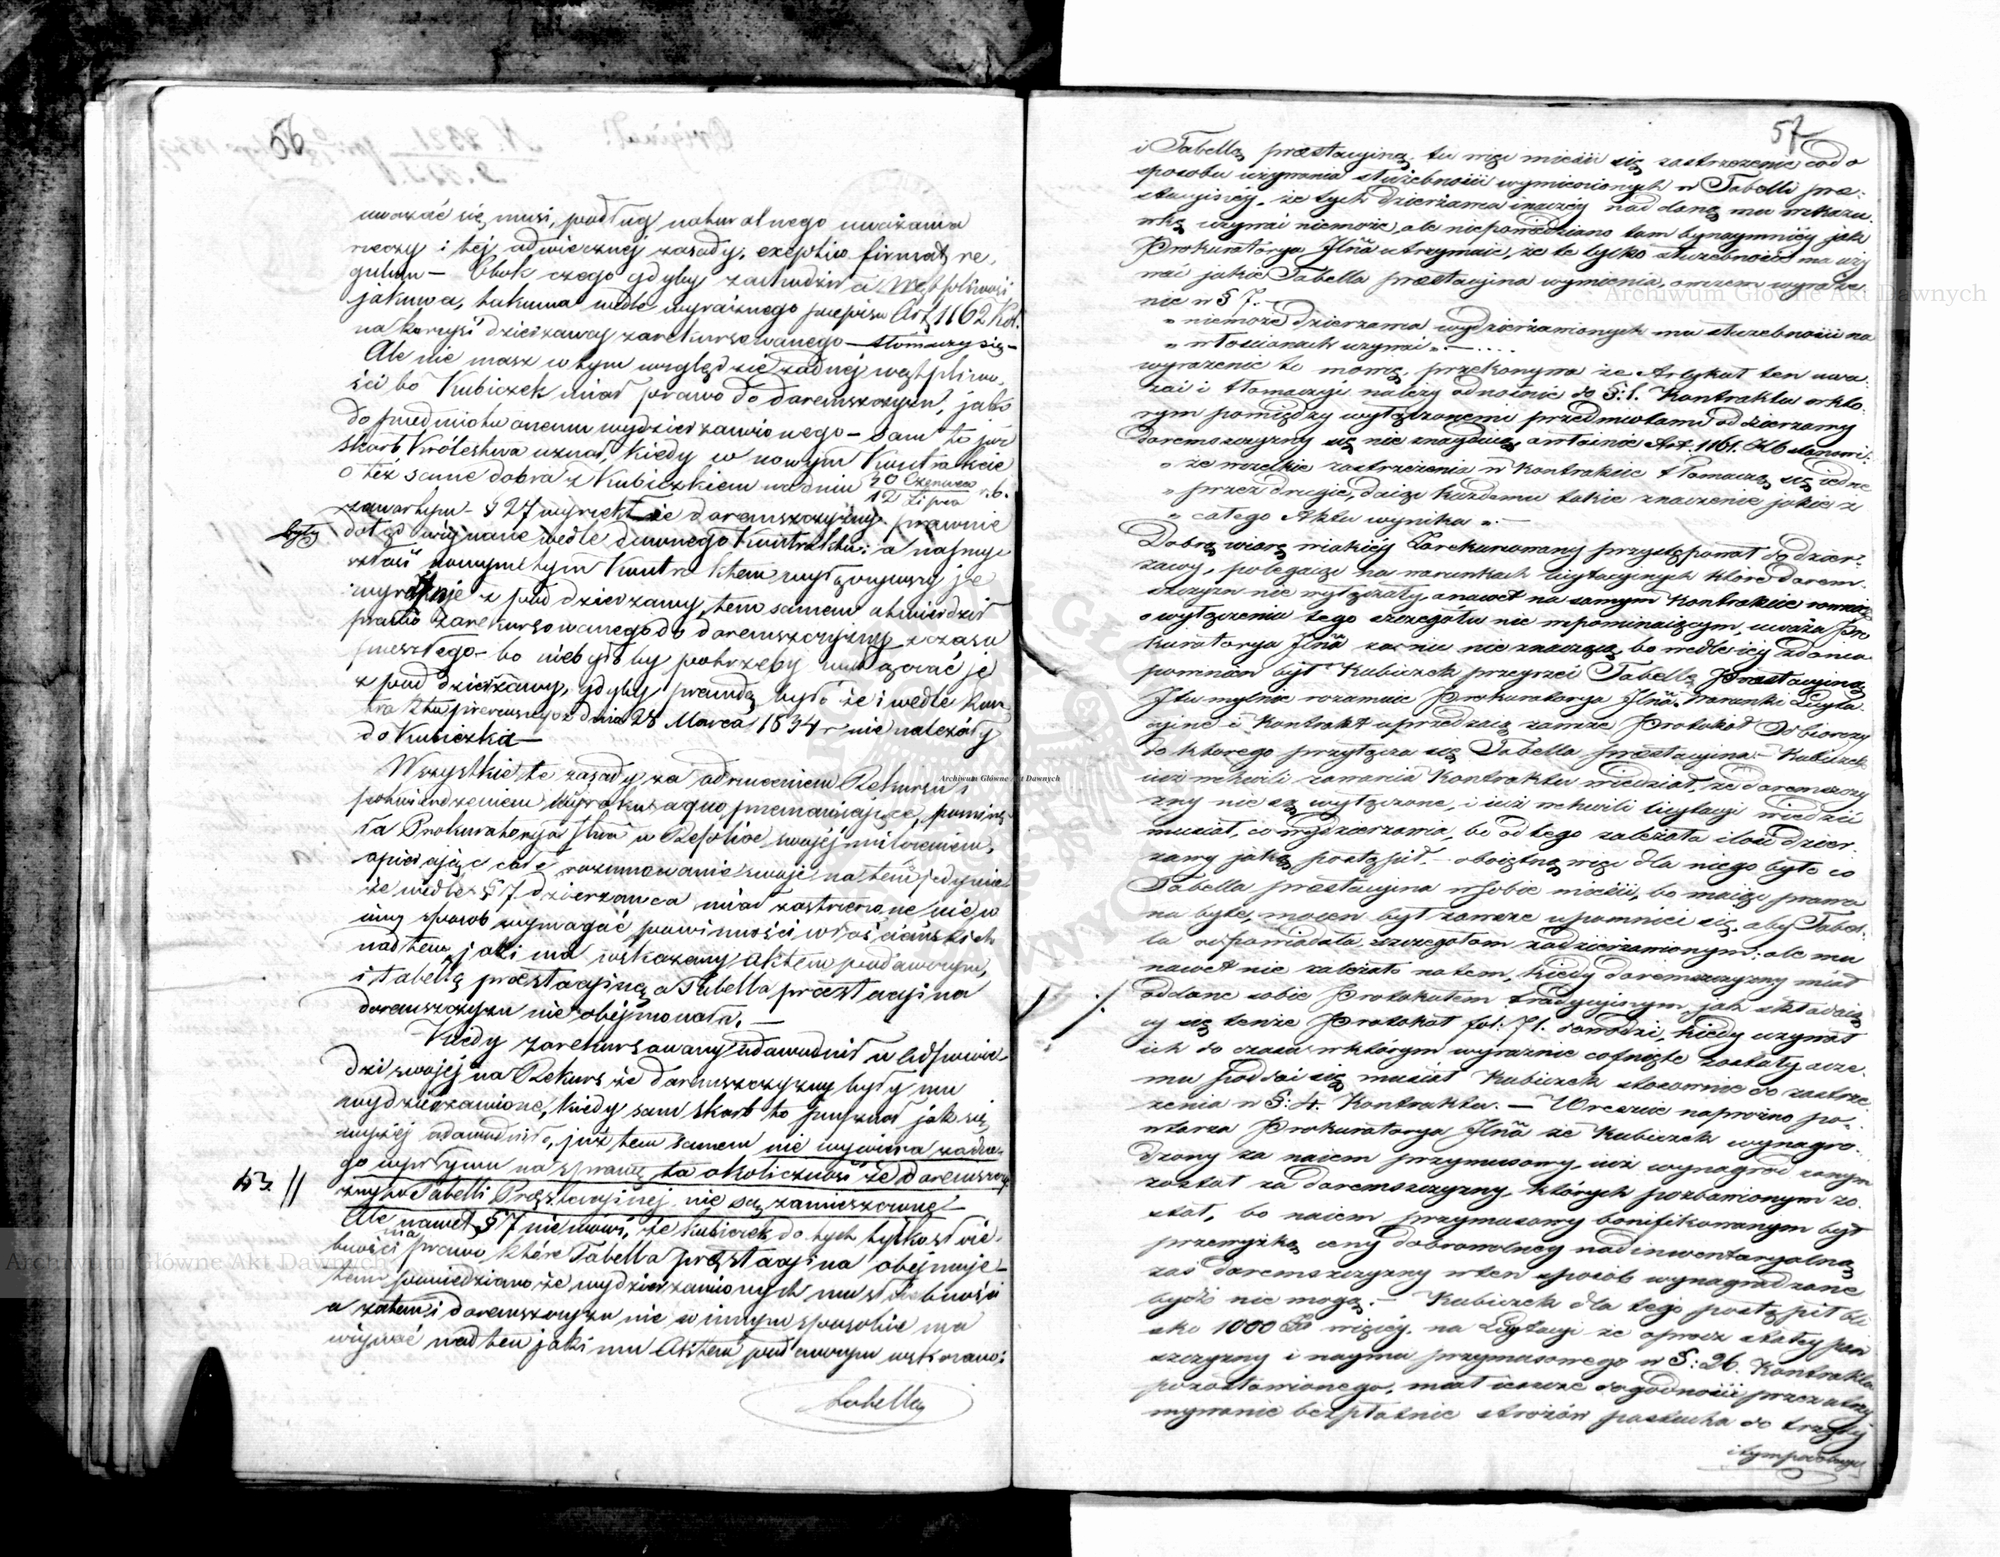 56
uważać się musi, podług naturalnego uważania
rzeczy i tej odwiecznej zasady, exeptio firmat re-
gulam – Obok czego gdyby zachodziła wątpliwość
jakowa, takowa wedle wyraźnego przepisu Art 1162 KC.
na korzyść dzierżawcy zarekursowanego – tłomaczy się –
Ale nie masz w tym względzie żadnej wątpliwo-
ści bo Kubiczek miał prawo do daremszczyzn, jako
do przedmiotu onemu wydzierżawionego – sam to już
skarb Królestwa uznał, kiedy w nowym Kontrakcie
o też same dobra z Kubiczkiem w dniu 30 Czerwca / 12 Lipca r. b.
zawartym – § 27 wyrzekł że daremszczyzny prawnie
były
dotąd używane wedle dawnego Kontraktu; a najmuje
nowym tym Kontraktem wyłączywszy je
wyraźnie z pod dzierżawy, tem samem utwierdził
prawo Zarekursowanego do daremszczyzny z czasu
przeszłego – bo nie byłoby potrzeby wyłączać je
z pod dzierżawy, gdyby prawdą było że i wedle Kon-
traktu pierwszego z dnia 28 Marca 1834 r nie należały
do Kubiczka –
Wszystkie te zasady za odrzuceniem Rekursu i
potwierdzeniem wyroku a quo przemawiające, pominę-
ła Prokuratorya Jlna w Replice swojej milczeniem,
opierając całe rozumowanie swoje na tem jedynie
że wedle § 7 dzierżawca miał zastrzeżone nie w
inny sposób wymagać powinności włościańskich
nad ten, jaki ma wskazany aktem podawczym,
i tabellą præstacyjną a Tabella præstacyjna
daremszczyzn nie obejmowała. —
Kiedy zarekursowany udowodnił w odpowie-
dzi swojej na Rekurs że daremszczyzny były mu
wydzierżawione, kiedy sam skarb to przyznał jak się
wyżej udowodniło, już tem samem nie wywiera żadne-
go wpływu na sprawę ta okoliczność że daremszczy-
43. //
zny w Tabelli Præstacyjnej nie są zamieszczone
Ale nawet § 7 nie mówi, że Kubiczek do tych tylko służe-
ma
bności prawo które Tabella præstacyjna obejmuje –
tam powiedziano że wydzierżawionych mu służebności
a zatem i daremszczyzn nie w innym sposobie ma
używać nad ten jaki mu Aktem podawczym wskazano:
Tabellą
57
i Tabellą præstacyjną, tu więc mieści się zastrzeżenie co do
sposobu używania służebności wymienionych w Tabelli præ-
stacyjnej, że tych dzierżawca inaczej nad daną mu wskazó-
wkę używać niemoże, ale niepowiedziano tam bynajmniej jak
Prokuratorya Jlna utrzymuie, że te tylko służebności ma uży-
wać jakie Tabella præstacyjna wymienia, owszem wyraże-
nie w § 7. –
„ niemoże dzierżawca wydzierżawionych mu służebności na
„ włościanach używać „ – . . . .
wyrażenie to mówię, przekonywa że Artykuł ten uwa-
żać i tłomaczyć należy odnośnie do §: 1. Kontraktu w któ-
rym pomiędzy wyłączonemi przedmiotami od dzierżawy
daremszczyzny się nie znajdują, a właśnie Art. 1161. KC stanowi:
„ że wszelkie zastrzeżenia w kontrakcie tłomaczą się jedne
„ przez drugie, dając każdemu takie znaczenie jakie z
„ całego Aktu wynika „ –
Dobrą wiarę w jakiej Zarekursowany przystępował do dzier-
żawy, polegając na warunkach licytacyjnych które darem-
szczyzn nie wyłączały, a nawet na samym Kontrakcie również
o wyłączeniu tego szczegółu nie wspominającym, uważa Pro-
kuratorya Jlna za nic nie znaczącą, bo wedle jej zdania
powinien był Kubiczek przejrzeć Tabellę præstacyjną
I tu mylnie rozumuie Prokuratorya Jlna. Warunki Licyta-
cyjne i Kontrakt uprzedzają zawsze Protokół Odbiorczy
do którego przyłącza się Tabella præstacyjna. – Kubiczek
już w chwili zawarcia Kontraktu wiedział, że daremszczy-
zny nie są wyłączone, i już w chwili licytacyi wiedzieć
musiał, co wydzierżawia, bo od tego zależała ilość dzier-
żawy jaką postąpił – obojętną więc dla niego było co
Tabella præstacyjna w sobie mieści, bo mając prawa
nabyte, mocen był zawsze upomnieć się, aby Tabel-
la odpowiadała szczegółom zadzierżawionym: ale mu
nawet nie zależało na tem, kiedy daremszczyzny miał
oddane sobie Protokułem tradycyjnym, jak składają-
cy się tenże Protokół fol: 71. dowodzi, kiedy używał
ich do czasu w którym wyraźnie cofnięte zostały, cze-
mu poddać się musiał Kubiczek stosownie do zastrze-
żenia w §: 4. Kontraktu. — Wreszcie napróżno po-
wtarza Prokuratorya Jlna że Kubiczek wynagro-
dzony za najem przymusowy, już wynagrodzonym
został za daremszczyzny, których pozbawionym zo-
stał, bo najem przymusowy bonifikowanym był
przewyżką ceny dobrowolnej nad inwentaryalną
zaś daremszczyzny w ten sposób wynagradzane
bydź nie mogą. – Kubiczek dla tego postąpił bli-
sko 1000 Zł więcej na Licytacyi że oprócz stałej pań-
szczyzny i najmu przymusowego w §: 26. Kontraktu
pozostawionego, miał jeszcze dogodności przez utrzy-
mywanie bezpłatnie stróżów pastucha do trzody
i tympodobnych